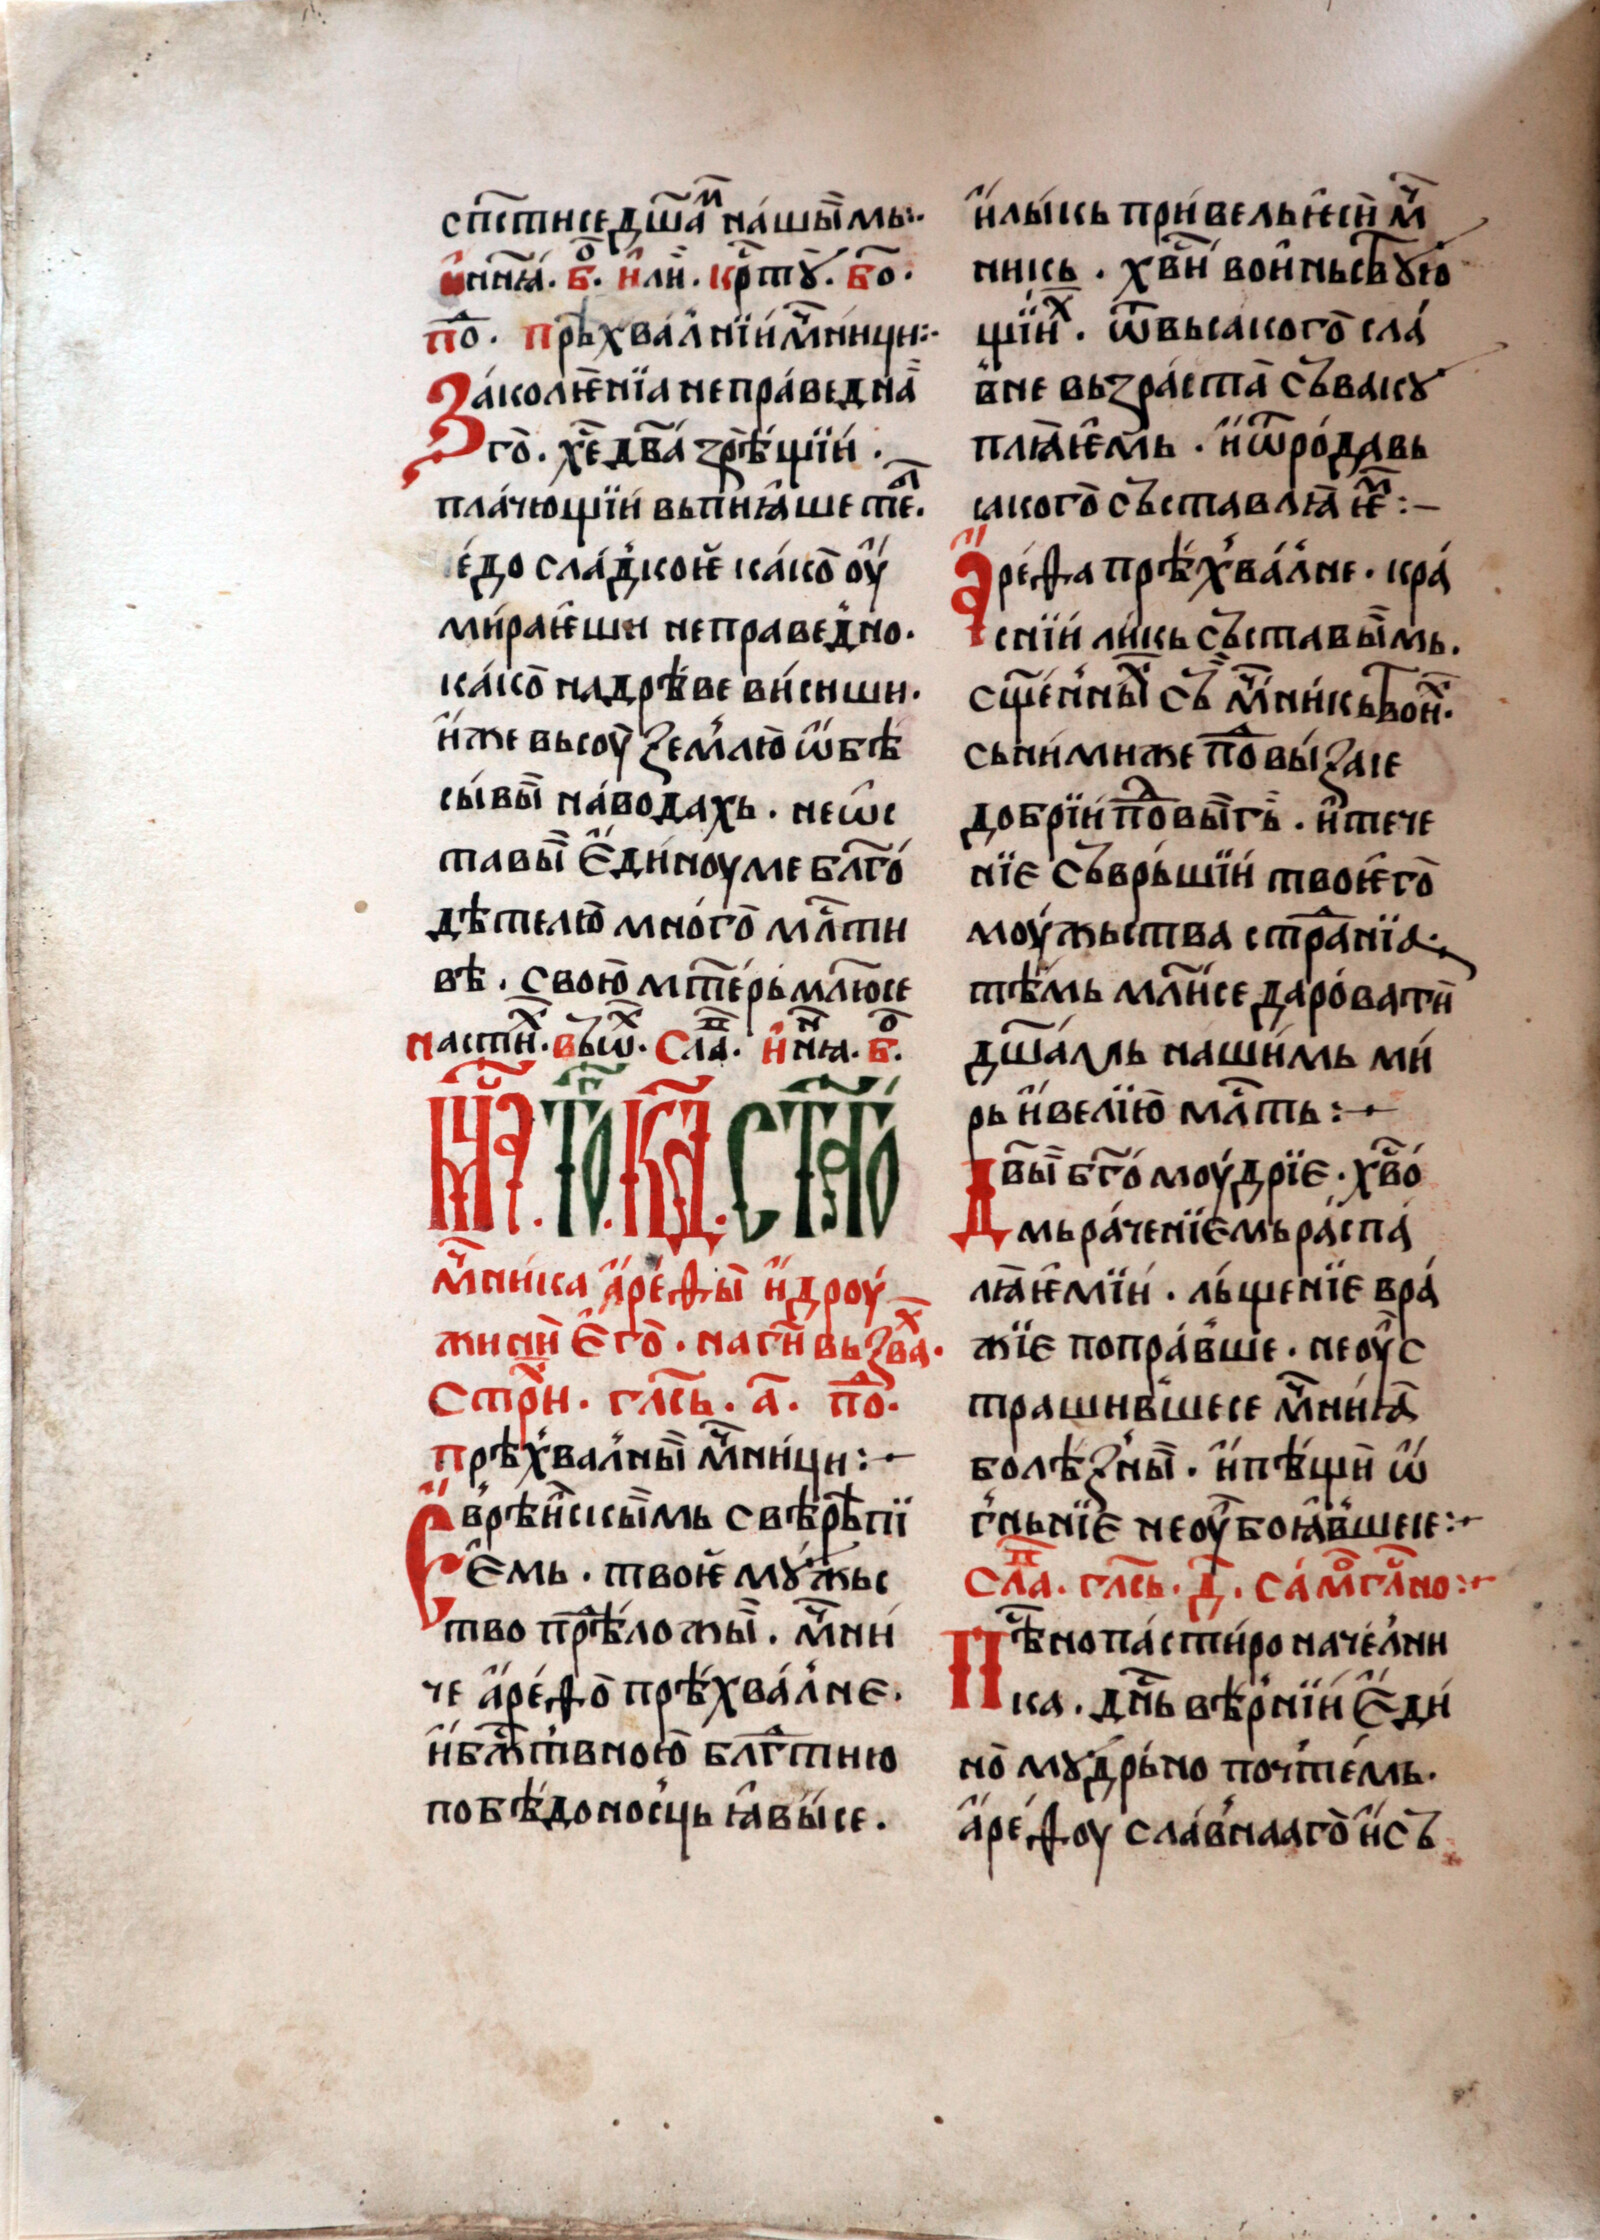 спⷭ҇тисе дш҃аⷨ на́шы̏мь:·
и҆нн҃ꙗ. бⷪ҇. и҆лѝ. крⷭ҇тꙋ̀. бо҃.
поⷣ. прѣхва́лнїи мⷱ҇ници:·
Закол҆ѥнїа непра́веднаⷶ
го̀. хе҃ два҃ зрⷺе́щїи.
пла́чющїи вьпїꙗ́ше теⷧ҇.
е́до сла́дкоѥ ка́ко̀ ѹ҆
ми́раѥши неправедно.
ка́ко̀ надрѣве ви́сиши.
и҆же вьсѹ̀ землю̀ ѡ҆бѣ
сы́вы̏ на́водахь. неѡ҆с
тавы̏ є҆ди́нѹ ме бл҃го́
дѣтелю̀ мно́го̀ млⷭ҇ти
вѣ. свою̀ мт҃ерь мл҃юсе
настиⷯ. въѡⷯ. Слаⷡ. и҆нⷩ҇ꙗ. бⷪ҇.
Мⷭ҇ца. То. К҃д. Ст҃аго
мⷱ҇ни́ка а҆ре́ѳы̏ и҆дрѹ́
жинѝ є҆го̀. на гѝ вьзваⷯ.
Стрⷯи. глⷭ҇ь. а҃. поⷣ.
прѣхва́лны̏ мⷱ҇ни́ци:·
Евре́искы̏мь свѣрѣпї
є҆мь. твоѥ мꙋжьс
тво прⷺело жы̏. мⷱ҇ни́
че а҆ре́ѳо̀ прѣхва́лнє.
и҆бжⷭ҇твною̀ блгⷣтию
побѣдоносць ꙗ҆вы́се.
и҆лы́кь при́вель ѥси̏ мⷱ҇
никь. хв҃и́ вои́ньств꙼ꙋю
щїиⷯ. ѿвьсакого̀ сла́
вне вьзраста̀ съвакꙋ
плꙗ́ѥмь. и҆ ѿро́да вь
сакого̀ съставлꙗ̀ѥⷨ:–
Аре́ѳа прѣхва́лне. кра́
снїи ли́кь съставы̏мь.
сщ҃е́нныⷯ съ мⷱ҇ни́кь вои́ⷩ.
сьни́миже поⷣвы́засе
добрїи поⷣвы̏гь. и҆ тече
нїє съврьшїи твоѥго̀
мѹжьства страⷣнїа.
тѣмь мл҃исе дарова́тѝ
дш҃амь нашимь ми́
рь и҆велїю̀ млⷭ҇ть:·
Двы̏ бг҃о́мѹдрїє. хв҃о́
мь ра́ченїємь распа́
лꙗѥмїи. льщенїє вра́
жїє попра́вше. неѹс
трашившесе мⷱ҇ни́ꙗ̀
болѣзны̏. и҆пѣщѝ ѡ҆
гнь нїє неѹбоꙗ́вшесе:·
Слаⷡ. глⷭ҇ь. д҃. са́моⷢлⷭно:·
Пⷭ҇ѣно па́стиро наче́лни
ка. дн҃ь вѣ́рнїи є҆ди́
но̀ мꙋдрьно почте́мь.
а҆ре́ѳѹ сла́внааго̀ и҆съ